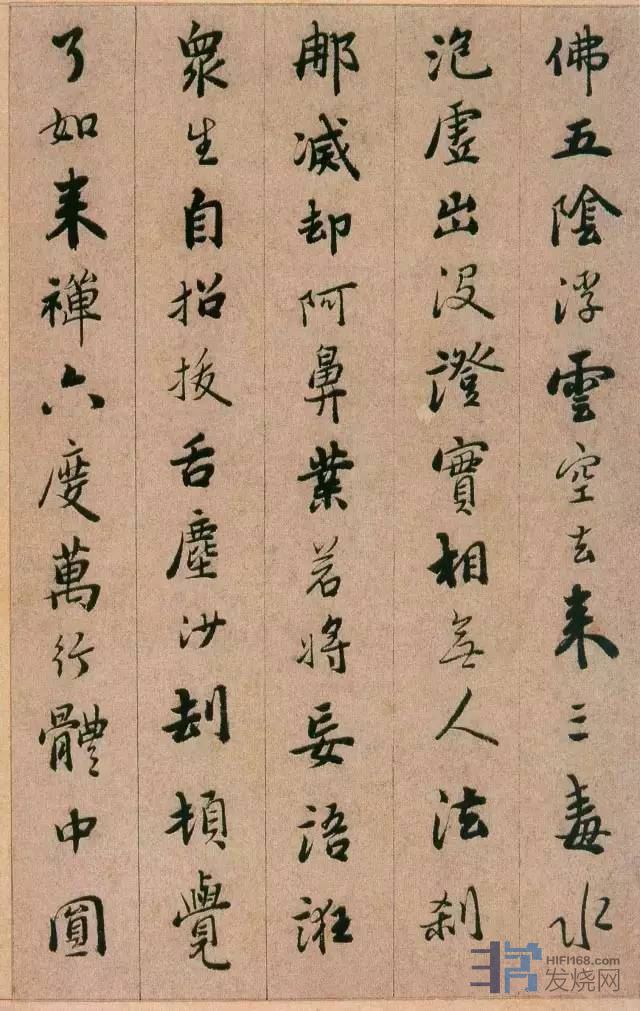 佛五陰浮雲空去来三毒水
泡虛出沒證實相無人法刹
那滅却阿鼻業若將妄語誑
衆生自招拔舌塵沙劫頓覺
了如来禪六度萬行體中圓
HIFI168.com
发烧网